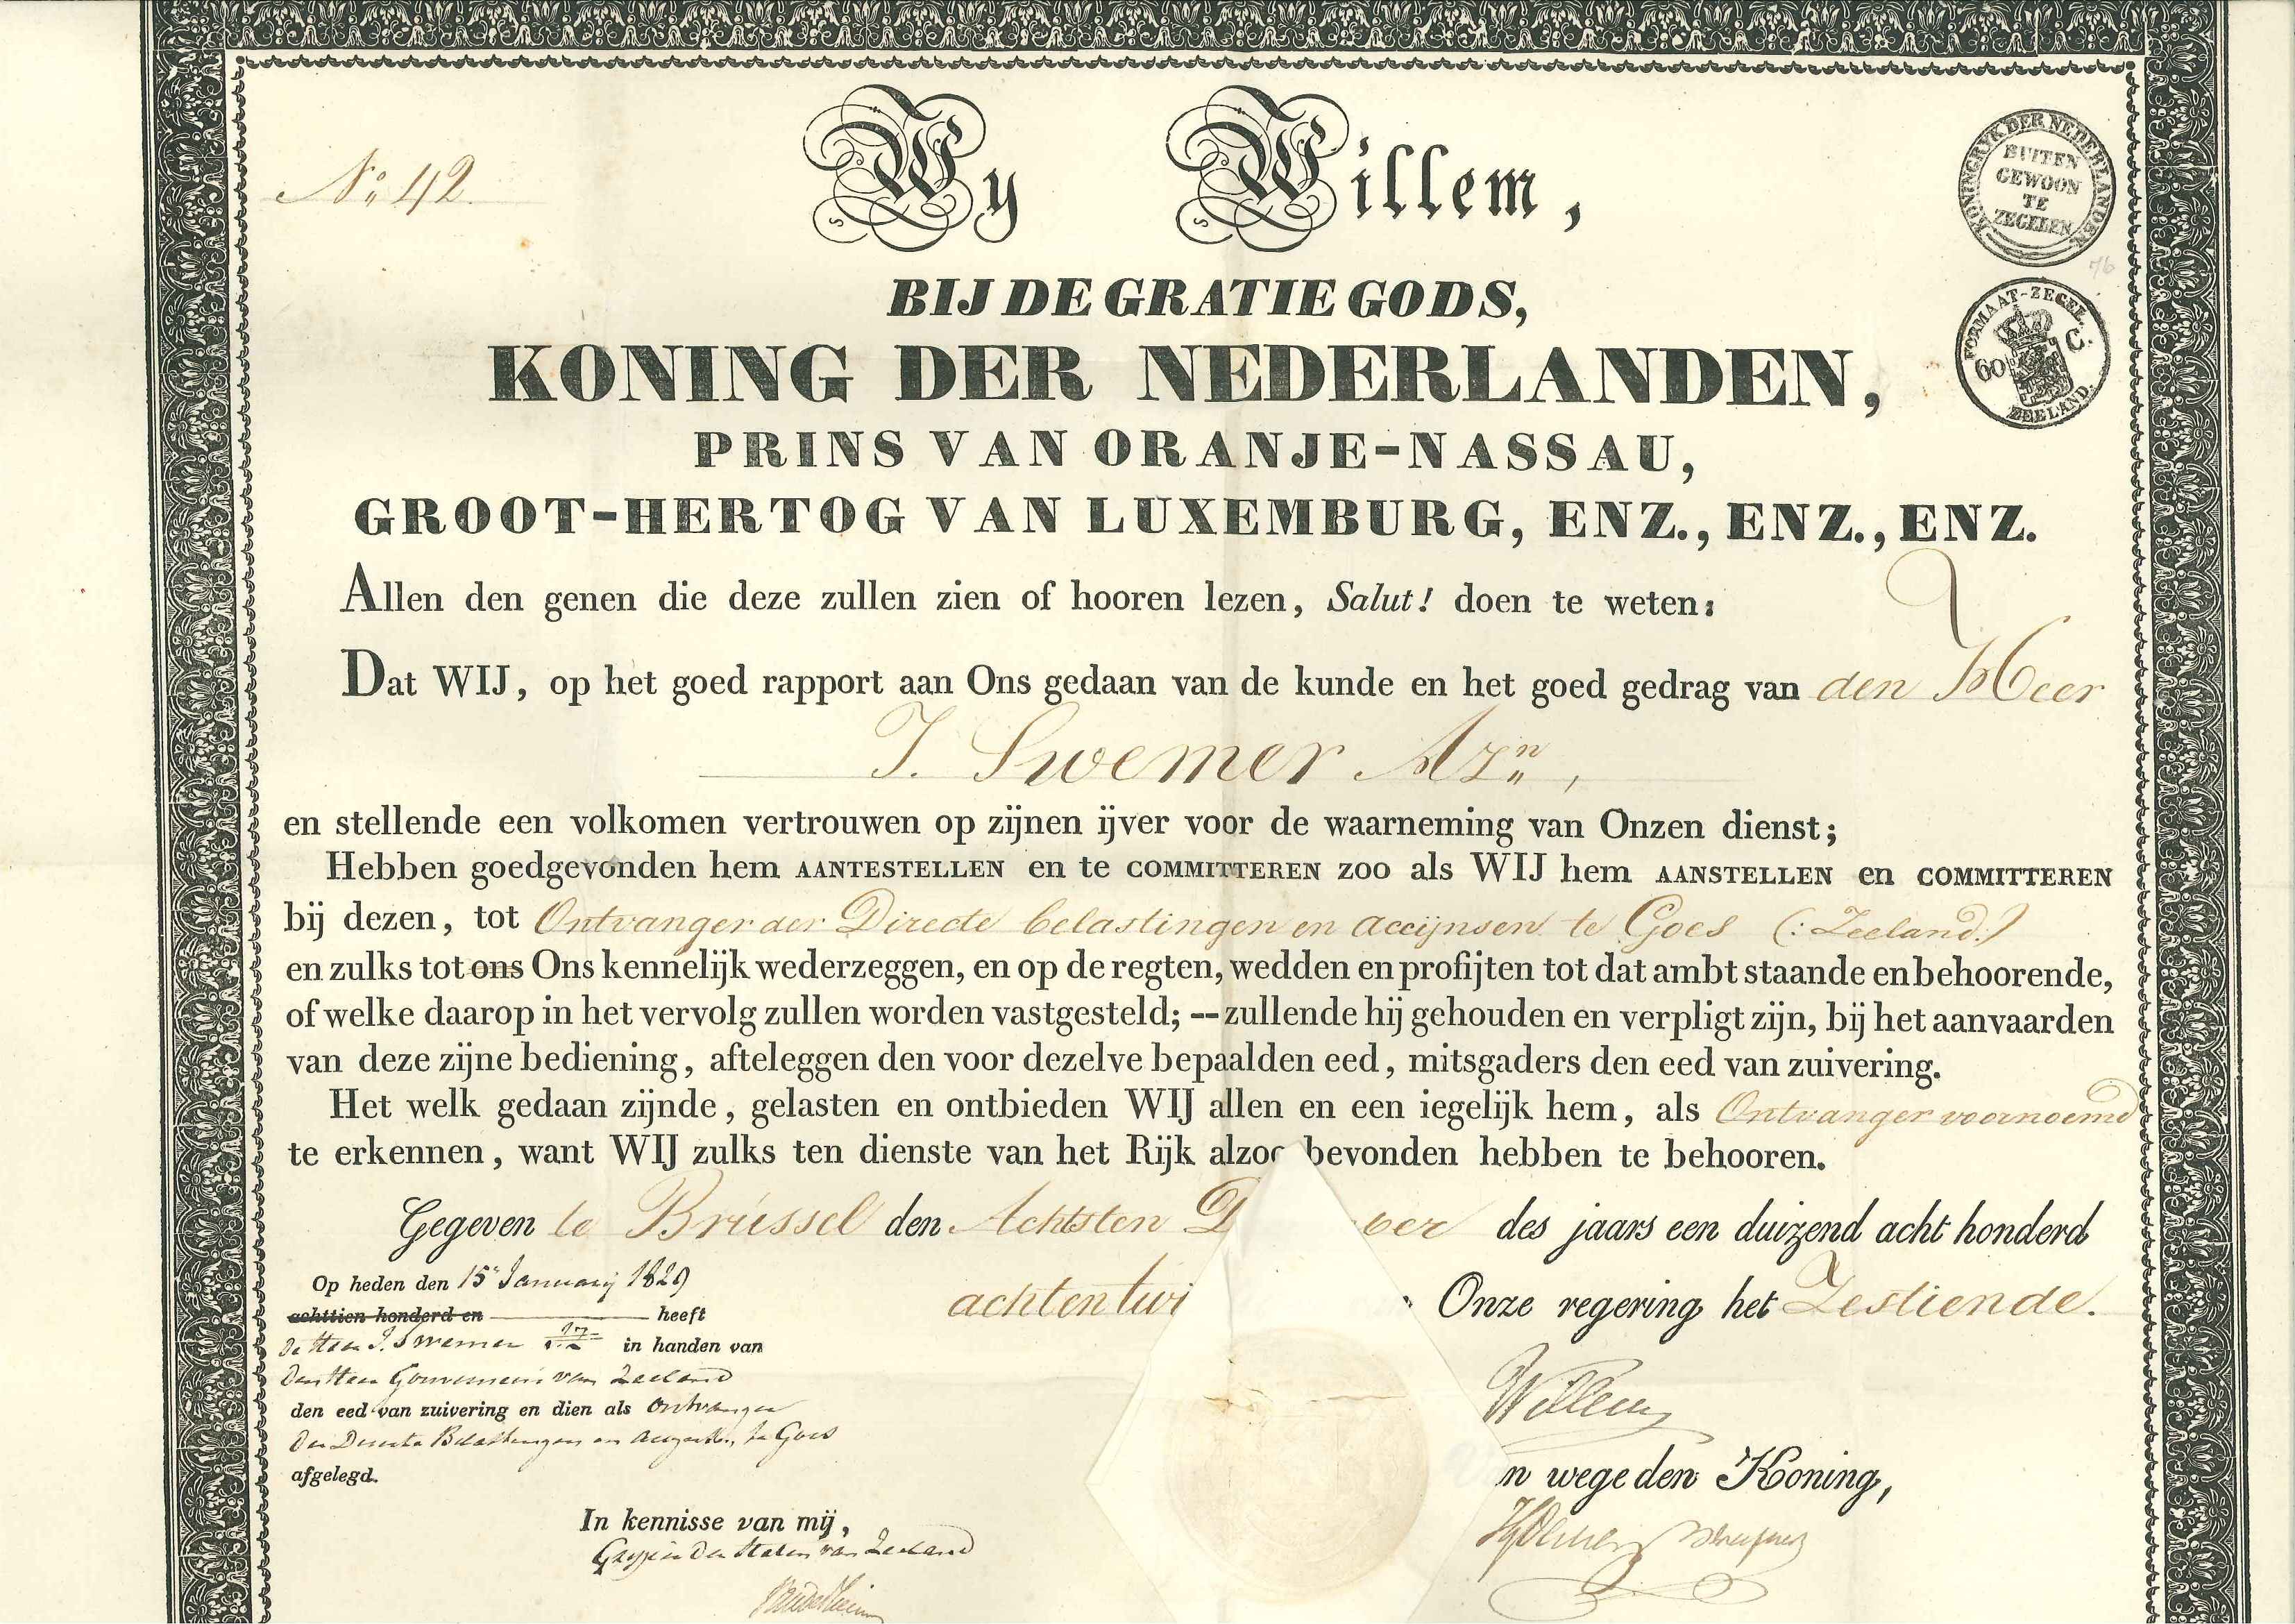 No. 42.
Wy Willem,
KONINGRYK DER NEDERLANDEN
BUITEN
GEWOON
TE
ZEGELEN
76
BIJ DE GRATIE GODS,
FORMAAT-ZEGEL.
60 C.
ZEELAND.
KONING DER NEDERLANDEN,
PRINS VAN ORANJE-NASSAU,
GROOT-HERTOG VAN LUXEMBURG, ENZ., ENZ., ENZ.
Allen den genen die deze zullen zien of hooren lezen, Salut! doen te weten:
Dat WIJ, op het goed rapport aan Ons gedaan van de kunde en het goed gedrag van den Heer
J. Swemer Azn,
en stellende een volkomen vertrouwen op zijnen ijver voor de waarneming van Onzen dienst;
Hebben goedgevonden hem AANTESTELLEN en te COMMITTEREN ZOO als WIJ hem AANSTELLEN en COMMITTEREN
bij dezen, tot Ontvanger der Directe belastingen en accijnsen te Goes (: Zeeland:)
en zulks tot ons Ons kennelijk wederzeggen, en op de regten, wedden en profijten tot dat ambt staande en behoorende,
of welke daarop in het vervolg zullen worden vastgesteld; -- zullende hij gehouden en verpligt zijn, bij het aanvaarden
van deze zijne bediening, afteleggen den voor dezelve bepaalden eed, mitsgaders den eed van zuivering.
Het welk gedaan zijnde, gelasten en ontbieden WIJ allen en een iegelijk hem, als Ontvanger voornoemd
te erkennen, want WIJ zulks ten dienste van het Rijk alzoo bevonden hebben te behooren.
Gegeven te Brussel den Achtsten D ber des jaars een duizend acht honderd
achtentwi Onze regering het Zestiende.
Op heden den 15 January 1829
achttien honderd en heeft
de Heer J. Swemer Azn in handen van
den Heer Gouverneur van Zeeland
den eed van zuivering en dien als Ontvanger
der Directe Belastingen en accijnsen te Goes
afgelegd.
Willem
n wege den Koning,
In kennisse van mij,
Griffier der Staten van Zeeland